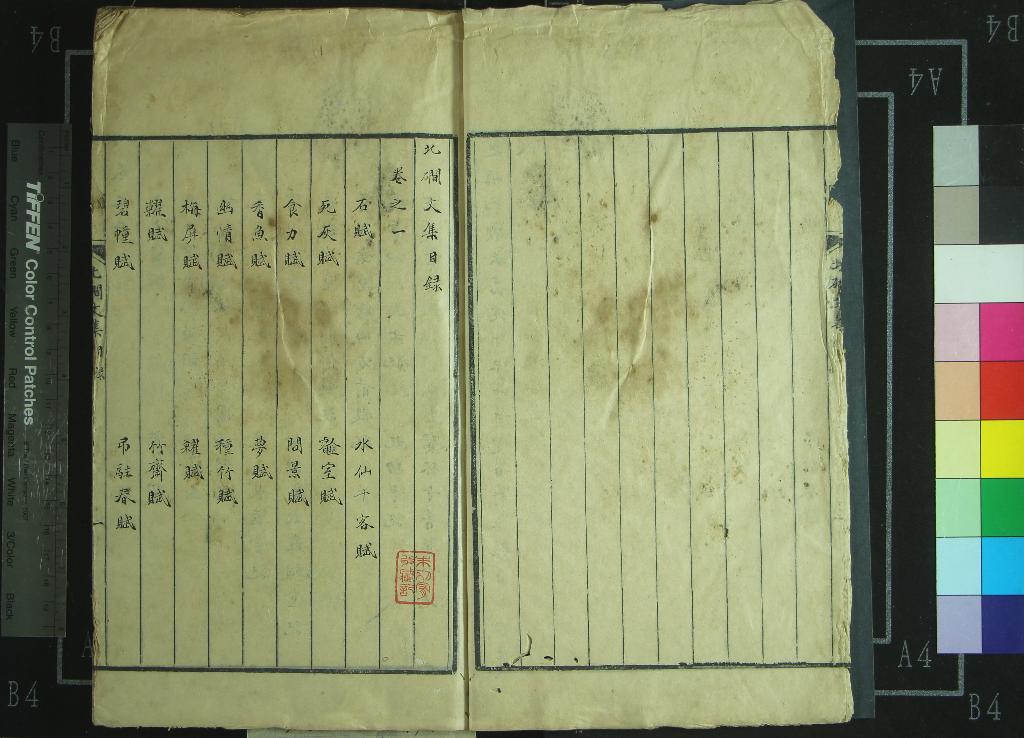 北磵文集目録
卷之一
石賦 水仙十客賦
死灰賦 龕室賦
食力賦 問景賦
香魚賦 夢賦
幽情賦 種竹賦
梅屏賦 糴賦
糶賦 竹齋賦
碧幢賦 弔駐春賦
一
TIFFEN Color Control Patches
Blue Cyan Green Yellow Red Magenta White 3/Color Black
B4
B4
A4
A4
B4
B4